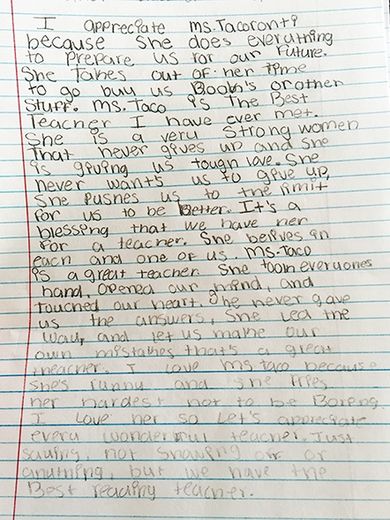 I appreciate ms.Tacoronti
because she does everything
to prepare us for our future.
She takes out of her time
to go buy us Book's or other
stuff. ms. Taco is The Best
Teacher I have ever met.
She is a very strong women
That never gives up and she
is giving us tough love. She
never wants us to give up,
She pushes us to the limit
for us to be Better. It's a
blessing that we have her
for a teacher. She belives in
each and one of us. Ms.Taco
is a great teacher. She took everyones
hand, opened our mind, and
touched our heart. She never gave
us the answers, she led the
way, and let us make our
own mistakes that's a great
theacher. I love ms.taco because
she's funny and she tries
her hardest not to be Boreng
I love her so Let's appreciate
every wonderful teacher. Just
saying, not showing off or
anything, but we have the
Best reading teacher.